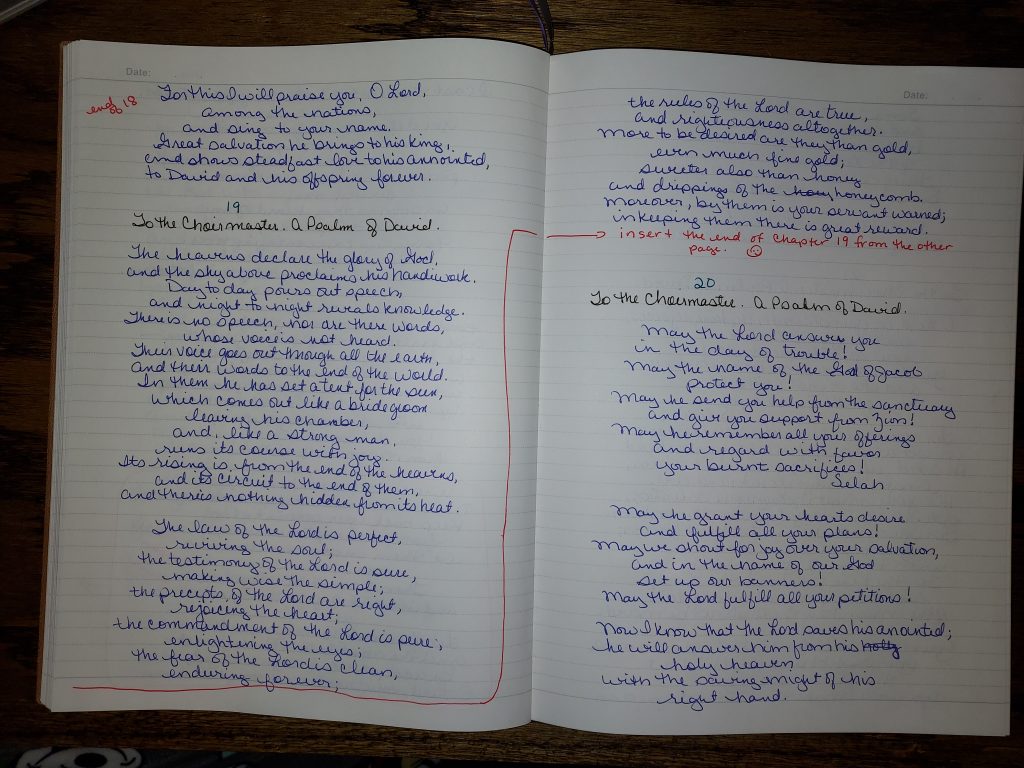 Date:
end of 18
For this I will praise you, O Lord,
among the nations,
and sing to your name.
Great salvation he brings to his king,
and shows steadfast love to his annointed,
to David and his offspring forever.
19
To the Choirmaster. A Psalm of David.
The heavens declare the glory of God,
and the sky above proclaims his handiwork.
Day to day pours out speech,
and night to night reveals knowledge.
There is no speech, nor are there words,
whose voice is not heard.
Their voice goes out through all the earth,
and their words to the end of the world.
In them he has set a tent for the sun,
which comes out like a bridegroom
leaving his chamber,
and, like a strong man,
runs its course with joy.
Its rising is from the end of the heavens,
and its circuit to the end of them,
and there is nothing hidden from its heat.
The law of the Lord is perfect,
reviving the soul;
the testimony of the Lord is sure,
making wise the simple;
the precepts of the Lord are right,
rejoicing the heart;
the commandment of the Lord is pure;
enlightening the eyes;
the fear of the Lord is clean,
enduring forever;
Date:
the rules of the Lord are true,
and righteousness altogether.
More to be desired are they than gold,
even much fine gold;
sweeter also than honey
and drippings of the honeycomb.
Moreover, by them is your servant warned;
in keeping them there is great reward.
insert the end of Chapter 19 from the other
page.
20
To the Choirmaster. A Psalm of David.
May the Lord answer you
in the day of trouble!
May the name of the God of Jacob
protect you!
May he send you help from the sanctuary
and give you support from Zion!
May he remember all your offerings
and regard with favor
your burnt sacrifices!
Selah
May he grant your hearts desire
and fulfill all your plans!
May we shout for joy over your salvation,
and in the name of our God
set up our banners!
May the Lord fulfill all your petitions!
Now I know that the Lord saves his anointed;
he will answer him from his holly
holy heaven
with the saving might of his
right hand.